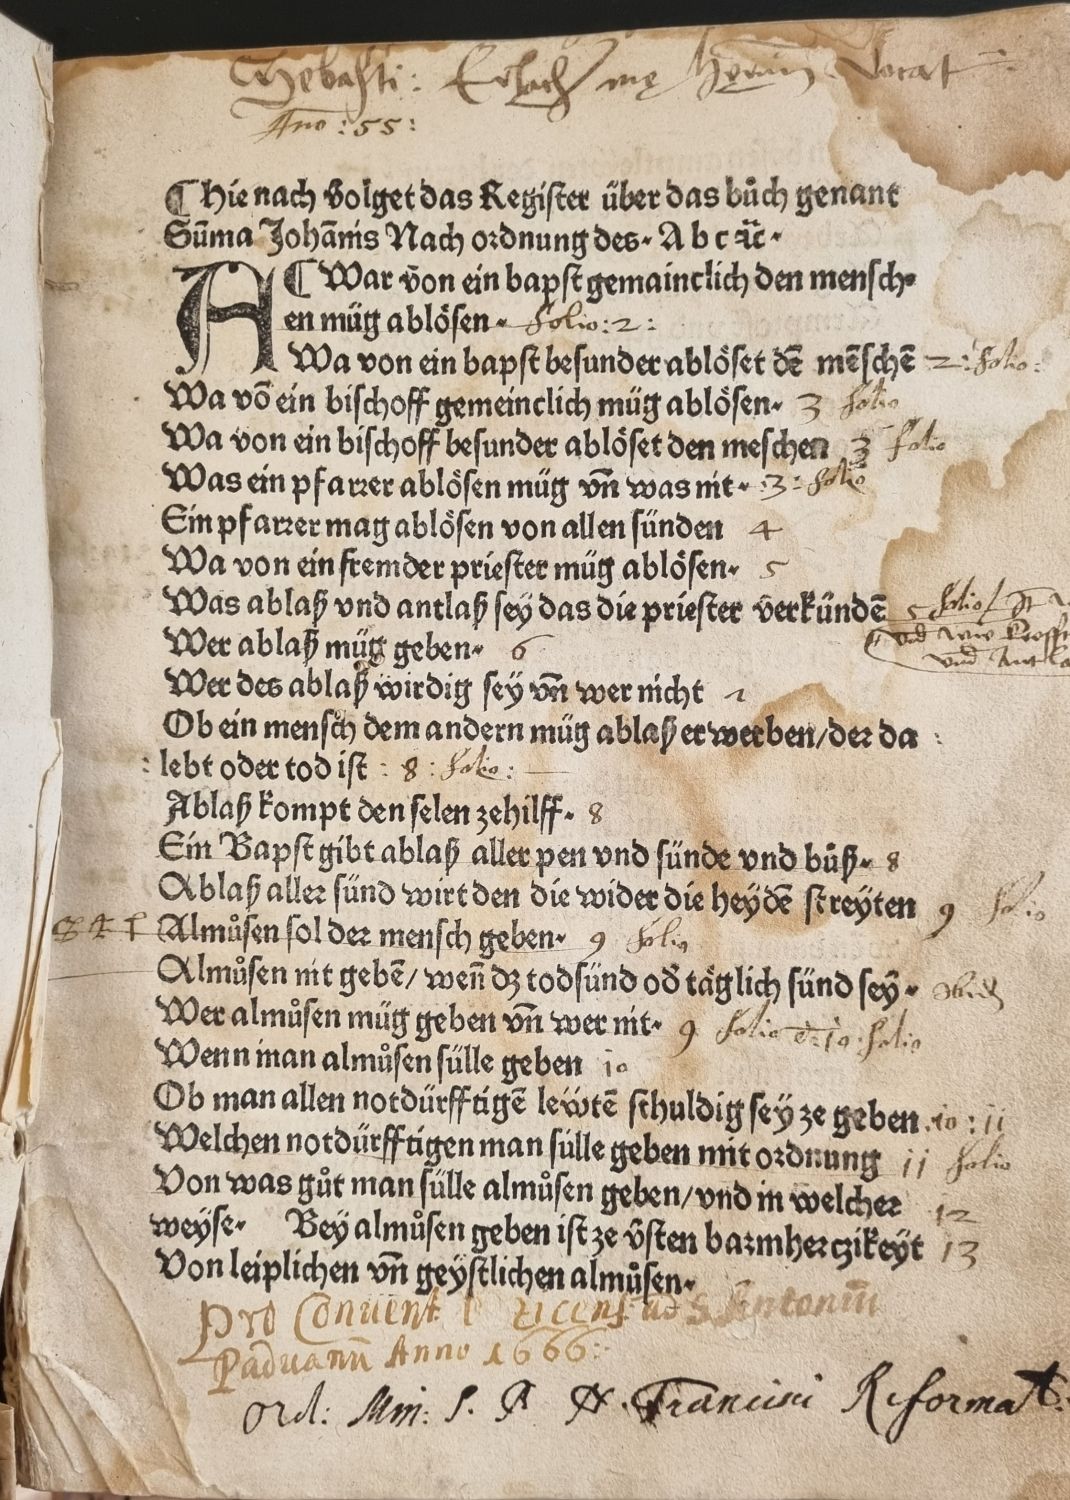 Sebasti: Erlach me herum vocat
Ano: 55:
¶ Hie nach volget das Register über das bůch genant
Sūma Johānis Nach ordnung des. A b c ꝛc.
A ¶ War vōn ein bapst gemainclich den mensch-
en müg ablösen. folio: 2:
Wa von ein bapst besunder ablöset dē mēschē 2: folio:
Wa vō ein bischoff gemeinclich müg ablösen. 3 folio
Wa von ein bischoff besunder ablöset den meschen 3 folio
Was ein pfarrer ablösen müg vn̄ was nit. :3: folio
Ein pfarrer mag ablösen von allen sünden 4
Wa von ein fremder priester müg ablösen. 5
Was ablaß vnd antlaß sey das die priester verkündē 5 folio
vnd
Wer ablaß müg geben. 6
vnd
Wer des ablaß wirdig sey vn̄ wer nicht
Ob ein mensch dem andern müg ablaß erwerben/der da :
: lebt oder tod ist : 8 : folio :
Ablaß kompt den selen zehilff. 8
Ein Bapst gibt ablaß aller pen vnd sünde vnd bůß. 8
Ablaß aller sünd wirt den die wider die heydē streyten 9 folio
Almůsen sol der mensch geben. 9 folio
Almůsen nit gebē/ wen̄ dz todsünd od̄ täglich sünd sey.
Wer almůsen müg geben vn̄ wer nit. 9 folio et 10 folio
Wenn man almůsen sülle geben 10
Ob man allen notdürfftigē lewtē schuldig sey ze geben. 10 : 11
Welchen notdürfftigen man sülle geben mit ordnung 11 folio
Von was gůt man sülle almůsen geben/vnd in welcher 12
weyse. Bey almůsen geben ist ze v̄sten barmherczikeyt 13
Von leiplichen vn̄ geystlichen almůsen.
Pro Conuent ad S. Antoniū
Paduanū Anno 1666:
Ord: Min: S. P. N. Francisci Reformat: